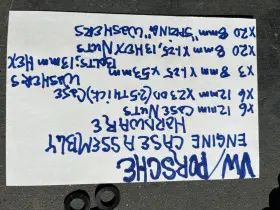 VW/PORSCHE
ENGINE CASE ASSEMBLY
HARDWARE
x6 12mm CASE NUTS
x6 12mm x 23 OD (2.5 THICK) CASE WASHERS
x3 8mm x 1.25 x 53mm BOLTS; 13mm HEX
x20 8mm x 1.25, 13 HEX NUTS
x20 8mm "SPRING" WASHERS